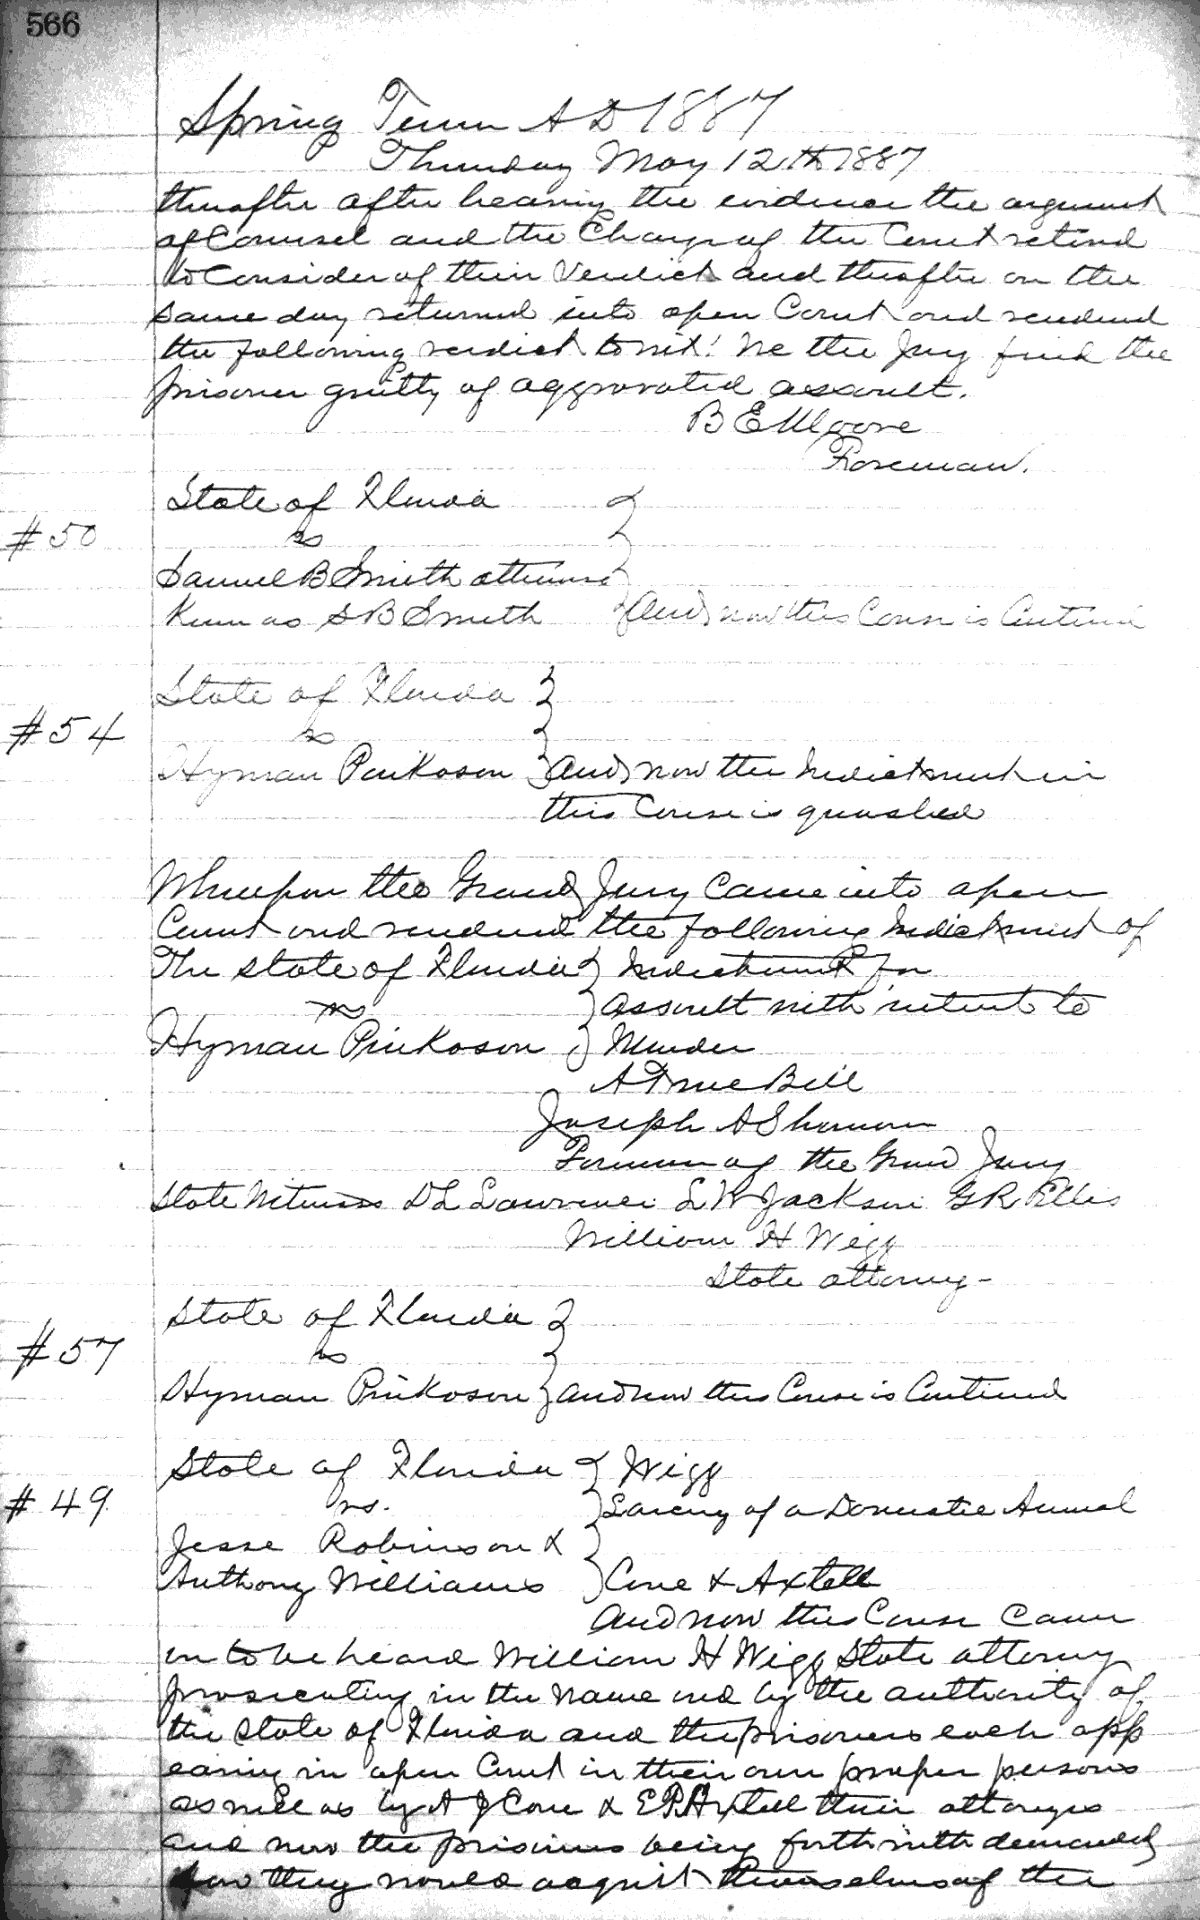 566
Spring Term A D 1887
Thursday May 12th 1887
thereafter after hearing the evidence the argument
of Counsel and the Charge of the Court retired
to Consider of their Verdict and thereafter on the
same day returned into open Court and rendered
the following verdict towit! We the Jury find the
prisoner guilty of aggravated assault.
B E Moore
Foreman.
State of Florida
#50 vs
Samuel B Smith otherwise
Known as S B Smith And now this Cause is Continued
State of Florida
#54 vs
Hyman Pinkoson And now the Indictment in
this Cause is quashed
Whereupon the Grand Jury Came into open
Court and rendered the following Indictment of
The State of Florida Indictment for
vs assault with intent to
Hyman Pinkoson Murder
A True Bill
Joseph A Shannon
Foreman of the Grand Jury
State Witnesses D L Lawrence L W Jackson G R Ellis
William H Wigg
State attorney -
State of Florida
#57 vs
Hyman Pinkoson and now this Cause is Continued
State of Florida Wigg
#49 vs. Larceny of a Domestic Animal
Jesse Robinson &
Anthony Williams Cone & Axtell
And now this Cause Came
on to be heard William H Wigg State attorney
prosecuting in the name and by the authority of
the State of Florida and the prisoners each app
earing in open Court in their own proper persons
as well as by A J Cone & E P Axtell their attorneys
and now the prisoners being forthwith demanded
how they would acquit themselves of the